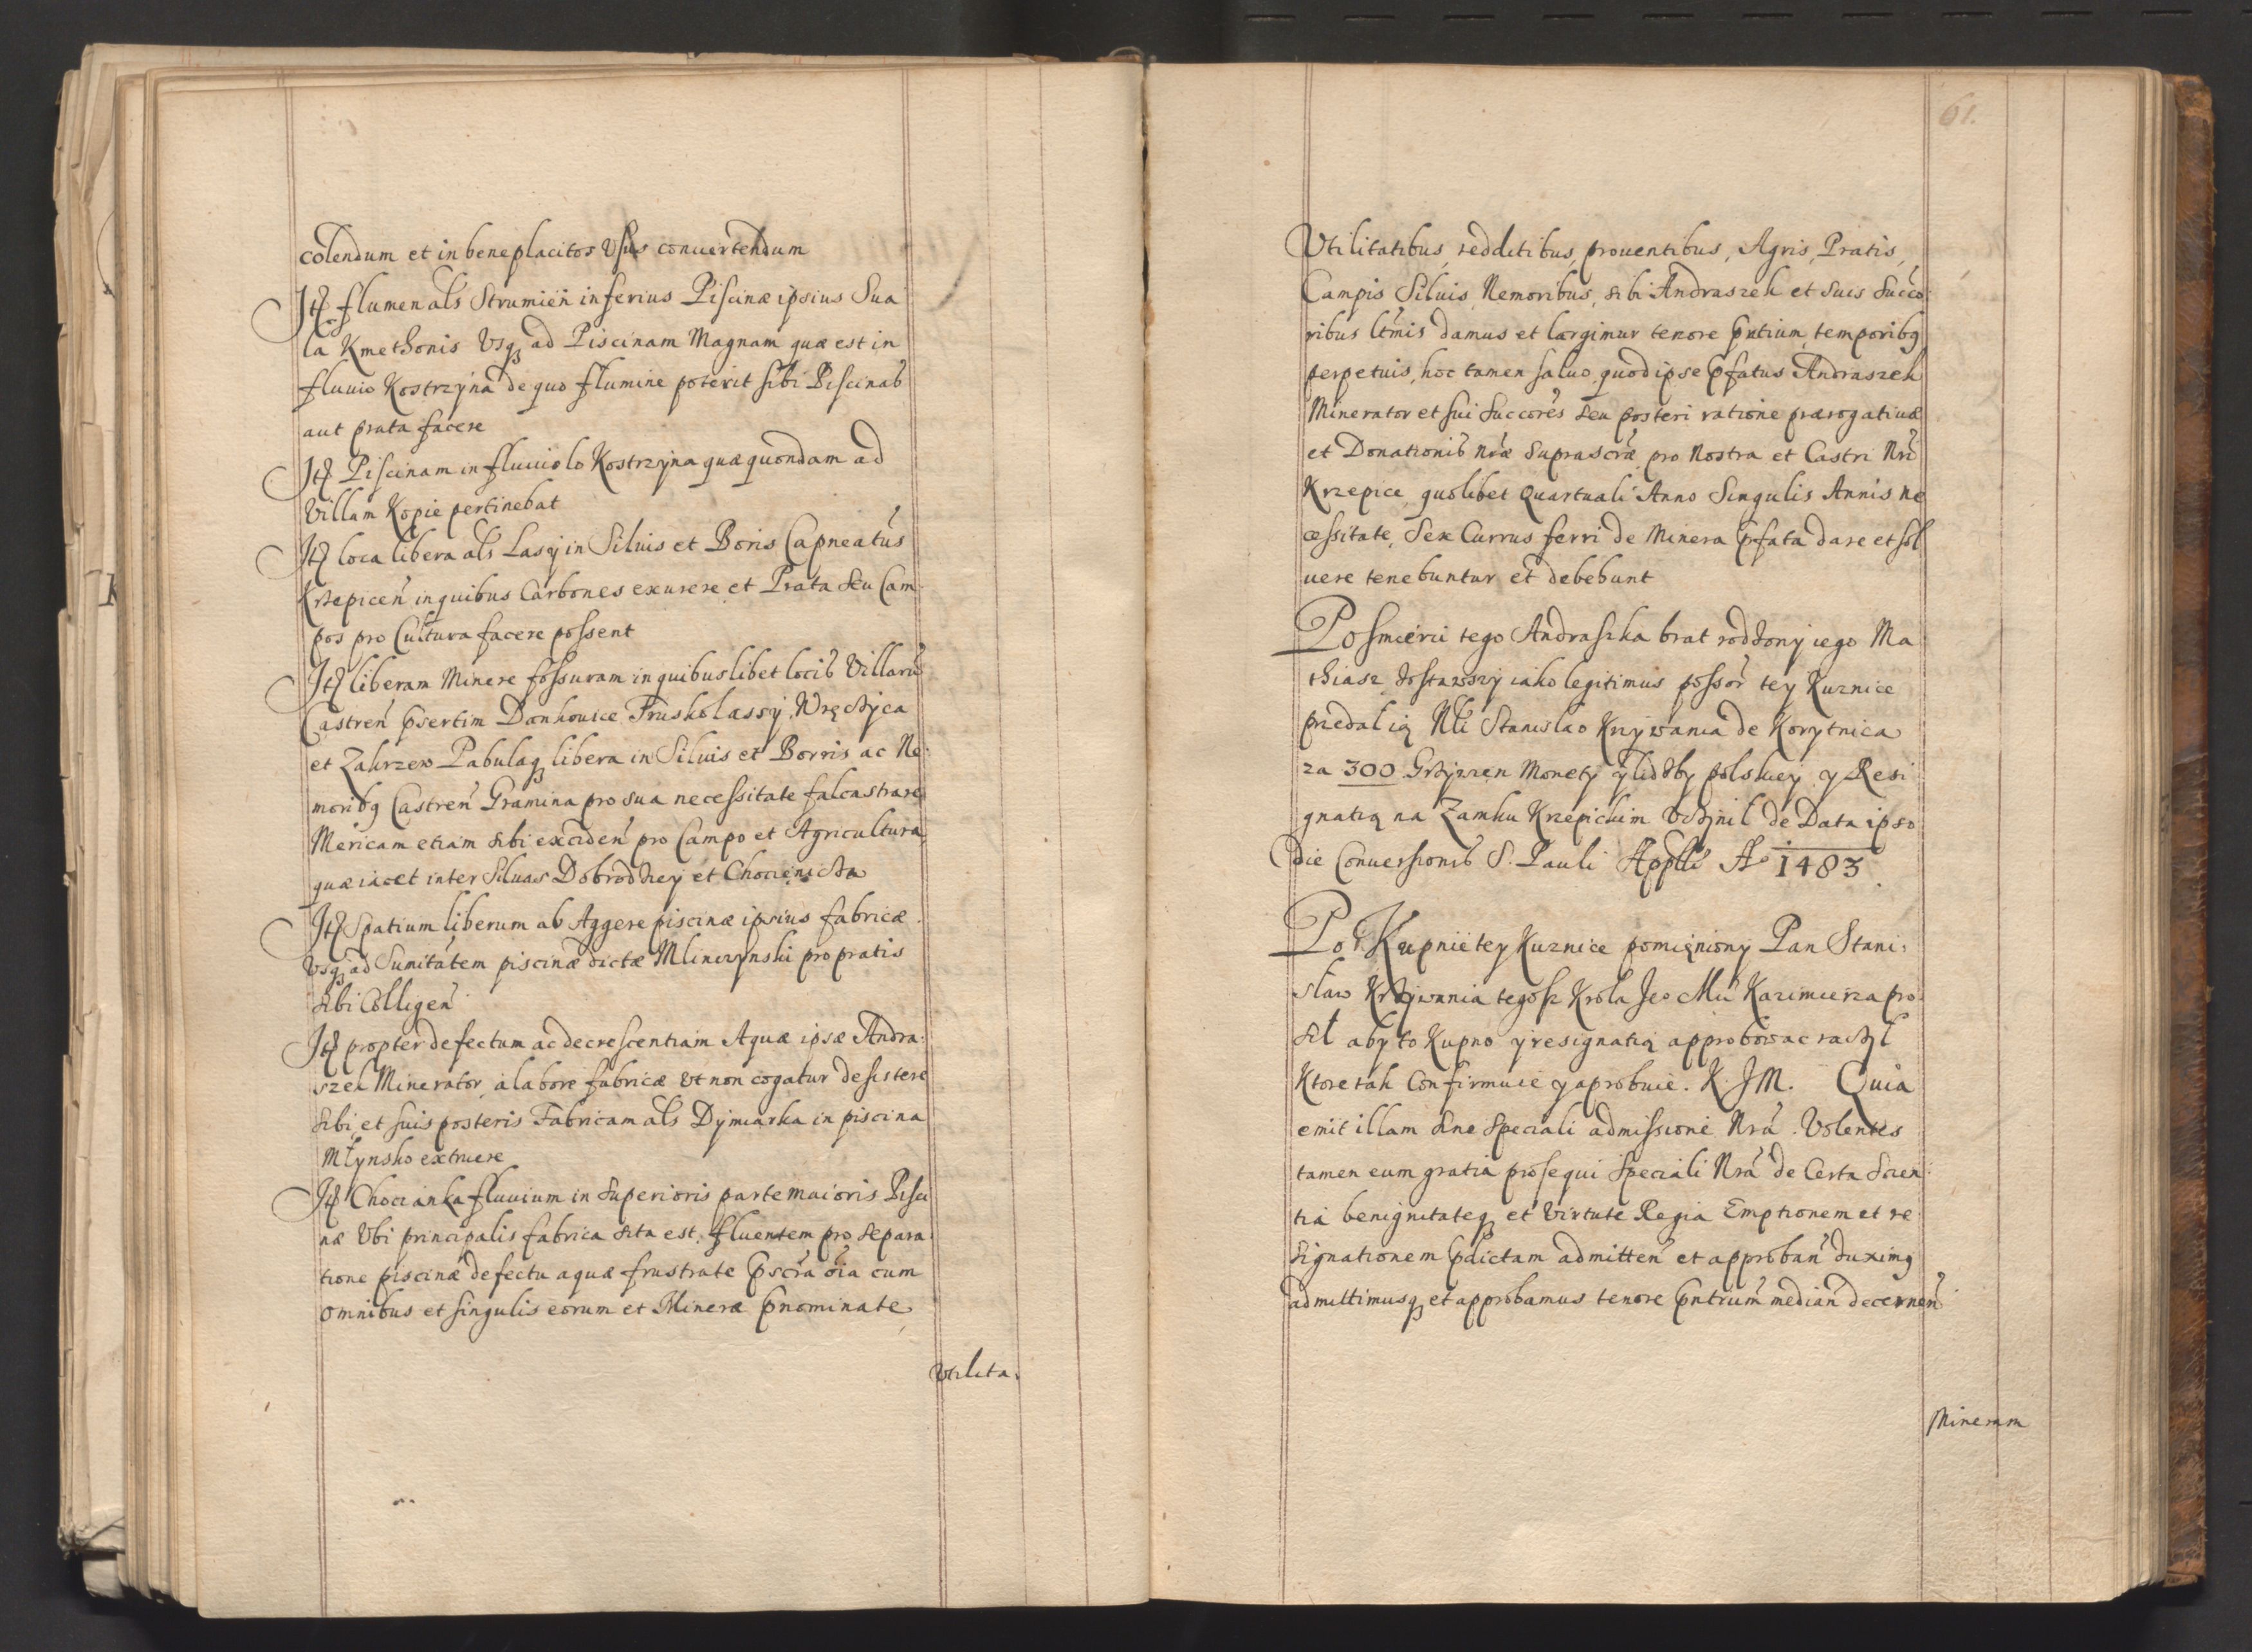 colendum et in beneplacitos Usus convertendum
Itq flumen als Strumień inferius Piscinæ ipsius Sua
la Kmethonis Usq ad Piscinam Magnam quæ est in
fluvio Kostrzyna de quo flumine poterit sibi Piscinas
aut prata facere
Itq Piscinam in fluviolo Kostrzyna quæ quondam ad
Villam Kopie pertinebat
Itq loca libera als Lasy in Silvis et Boris Capneatus
Krzepicen in quibus Carbones exurere et Prata seu Cam
pos pro Cultura facere possent
Itq liberam Minere fossuram in quibuslibet locis Villaru
Castren psertim Dankowice Truskolassy, Wręczyca
et Zakrzew Pabulaq libera in Silvis et Borris ac Ne:
moribq Castren Gramina pro sua necessitate falcastrare
Mericam etiam sibi exciden pro Campo et Agricultura
quæ iacet inter Silvas Dobrodzey et Chocienicza
Itq Spatium liberum ab Aggere piscinæ ipsius fabricæ
Usq ad Sumitatem piscinæ dictæ Mlinczynski pro pratis
sibi Colligen
Itq propter defectum ac decrescentiam Aquæ ipsæ Andra:
szek Minerator, a labore fabricæ ut non cogatur desistere
sibi et suis posteris Fabricam als Dymarka in piscina
Młynsko extruere
Itq Chocianka fluvium in Superioris parte maioris Pisci
næ Ubi principalis fabrica sita est, fluentem pro separa
tione piscinæ defectu aquæ frustrate pscra oia cum
omnibus et singulis eorum et Mineræ pnominate
Utilita:
61.
Utilitatibus, redditibus, proventibus, Agris, Pratis,
Campis Silvis Nemoribus, sibi Andraszek et suis Succo
ribus ltmis damus et largimur tenore pntium temporibq
perpetuis, hoc tamen salvo, quod ipse pfatus Andraszek
Minerator et sui Succores seu posteri ratione prærogativæ
et Donationis nræ suprascræ pro Nostra et Castri Nri
Krzepice, quolibet Quartuali Anno Singulis Annis ne
cessitate, Sex Currus ferri de Minera pfata dare et sol
vere tenebuntur et debebunt
Po smierci tego Andraszka brat rodzony iego Ma
thiasz zostawszy iako legitimus possor tey Kuznice
przedal ią Nli Stanislao Krzywania de Korytnica
za 300 Grzywien Monety y liczby polskiey y Resi
gnatią na Zamku Krzepickim Uczynil de Data ipso
die Conversionis S. Pauli Appli Ao 1483
Po Kupnie tey Kuznice pomięniony Pan Stani:
slaw Krzywania tegosz Krola Jeo Mci Kazimierza pro
sił aby to Kupno y resignatią approbowac raczyl
Ktore tak Confirmuie y aprobuie. K. J M. Quia
emit illam sine speciali admissione Nra. Volentes
tamen eum gratia prosequi speciali Nra de Certa Scien
tia benignitateq et Virtute Regia Emptionem et re
signationem pdictam admitten et approban duximq
admittimusq et approbamus tenore pntrum median decernen
Mineram